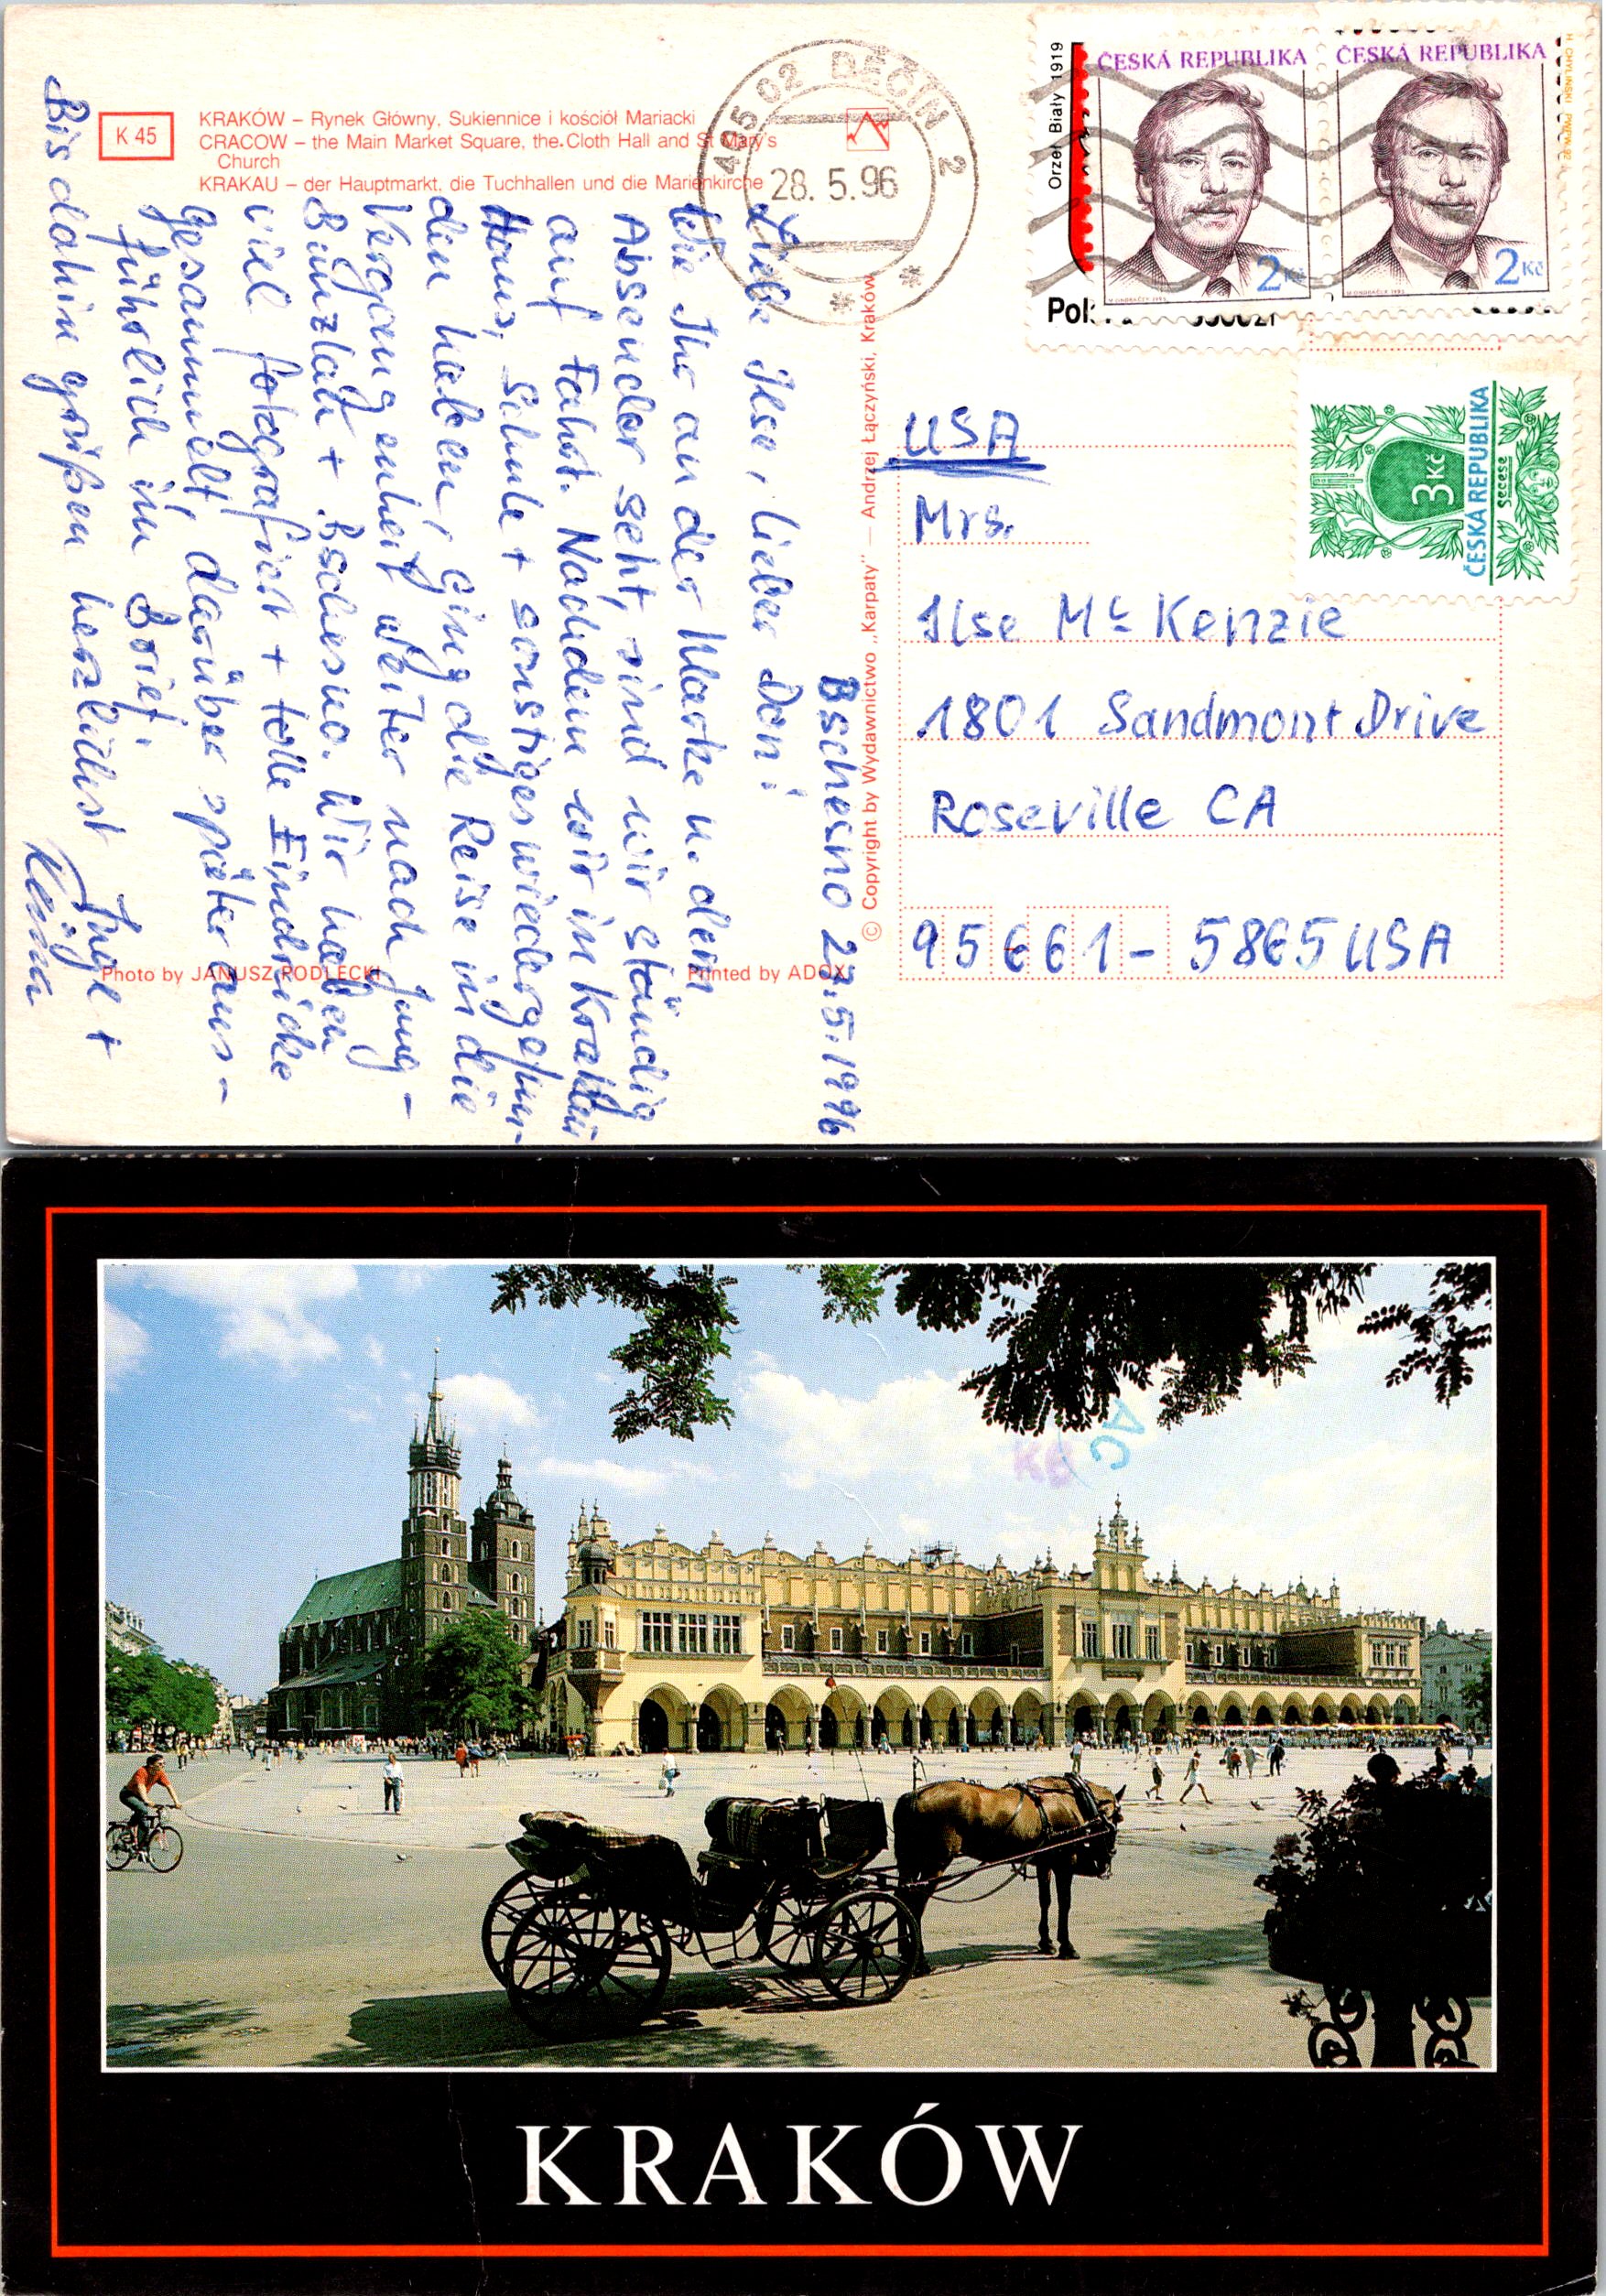 K 45
KRAKÓW – Rynek Główny, Sukiennice i kościół Mariacki
CRACOW – the Main Market Square, the Cloth Hall and St Mary's
Church
KRAKAU – der Hauptmarkt, die Tuchhallen und die Marienkirche
405 02 DĚČÍN 2
28. 5. 96
Orzeł Biały 1919
ČESKÁ REPUBLIKA
2 Kč
ČESKÁ REPUBLIKA
2 Kč
ČESKÁ REPUBLIKA
secese
3 Kč
Bschesno 27.5.1996
Liebe Ilse, lieber Don!
Wie Ihr an der Marke u. dem
Absender seht, sind wir ständig
auf Fahrt. Nachdem wir in Krakau
Haus, Schule + sonstiges wiedergefun-
den haben, ging die Reise in die
Vergangenheit weiter nach Jung-
Bunzlau + Bschesno. Wir haben
viel fotografiert + tolle Eindrücke
gesammelt, darüber später aus-
führlich im Brief.
Bis dahin grüßen herzlichst Inge +
Heinz
© Copyright by Wydawnictwo „Karpaty" — Andrzej Łączyński, Kraków
USA
Mrs.
Ilse Mc Kenzie
1801 Sandmont Drive
Roseville CA
95661-5865 USA
Photo by JANUSZ PODLECKI
Printed by ADOX
AC
KRAKÓW